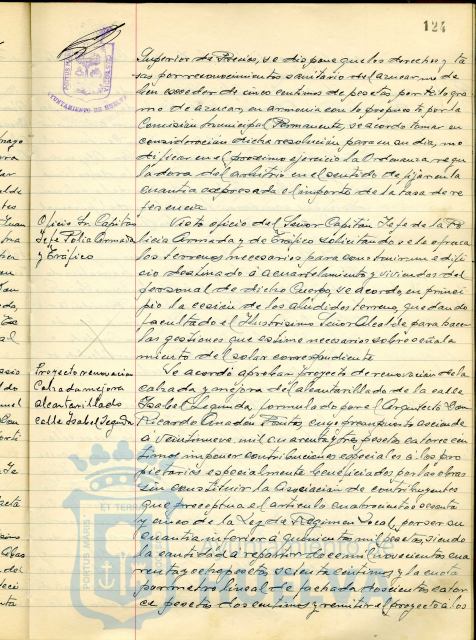 124
Superior de Precios, se dispone que los derechos y ta
sas por reconocimientos sanitario del azucar, no de
ben exceder de cinco centimos de pesetas por kilogra
mo de azucar, en armonia con lo propuesto por la
Comisión Municipal Permanente, se acordo tomar en
consideracion dicha resolucion para en su dia, mo
dificar en el proximo ejercicio la Ordenanza regu
ladora del arbitrio en el sentido de fijar en la
cuantia expresada el importe de la tasa de re
ferencia
Oficio Sr. Capitán
Jefe Policia Armada
y Tráfico
Visto oficio del Señor Capitán Jefe de la Po
licia Armada y de Tráfico solicitando se le ofrezca
los terrenos necesarios para construir un edifi
cio destinado a acuartelamiento y viviendas del
personal de dicho Cuerpo, se acordo, en princi
pio la cesión de los aludidos terrenos, quedando
facultado el Ilustrisimo Señor Alcalde para hacer
las gestiones que estime necesarios sobre señala
miento del solar correspondiente
Proyecto renovacion
calzada mejora
alcantarillado
calle Isabel Segunda
Se acordó aprobar Proyecto de renovación de la
calzada y mejora del alcantarillado de la calle
Isabel Segunda, formulado por el Arquitecto Don
Ricardo Anadón Frutos, cuyo presupuesto asciende
a veintinueve mil cuarenta y tres pesetas catorce cen
timos, imponer contribuciones especiales a los pro
pietarios especialmente beneficiados por las obras
sin constituir la Asociación de contribuyentes
que preceptua el articulo cuatrocientos sesenta
y cinco de la Ley de Regimen Local, por ser su
cuantia inferior a quinientas mil pesetas, siendo
la cantidad a repartir doce mil novecientos cua
renta y ocho pesetas, setenta centimos y la cuota
por metro lineal de fachada doscientos cator
ce pesetas dos centimos y remitir el proyecto a los